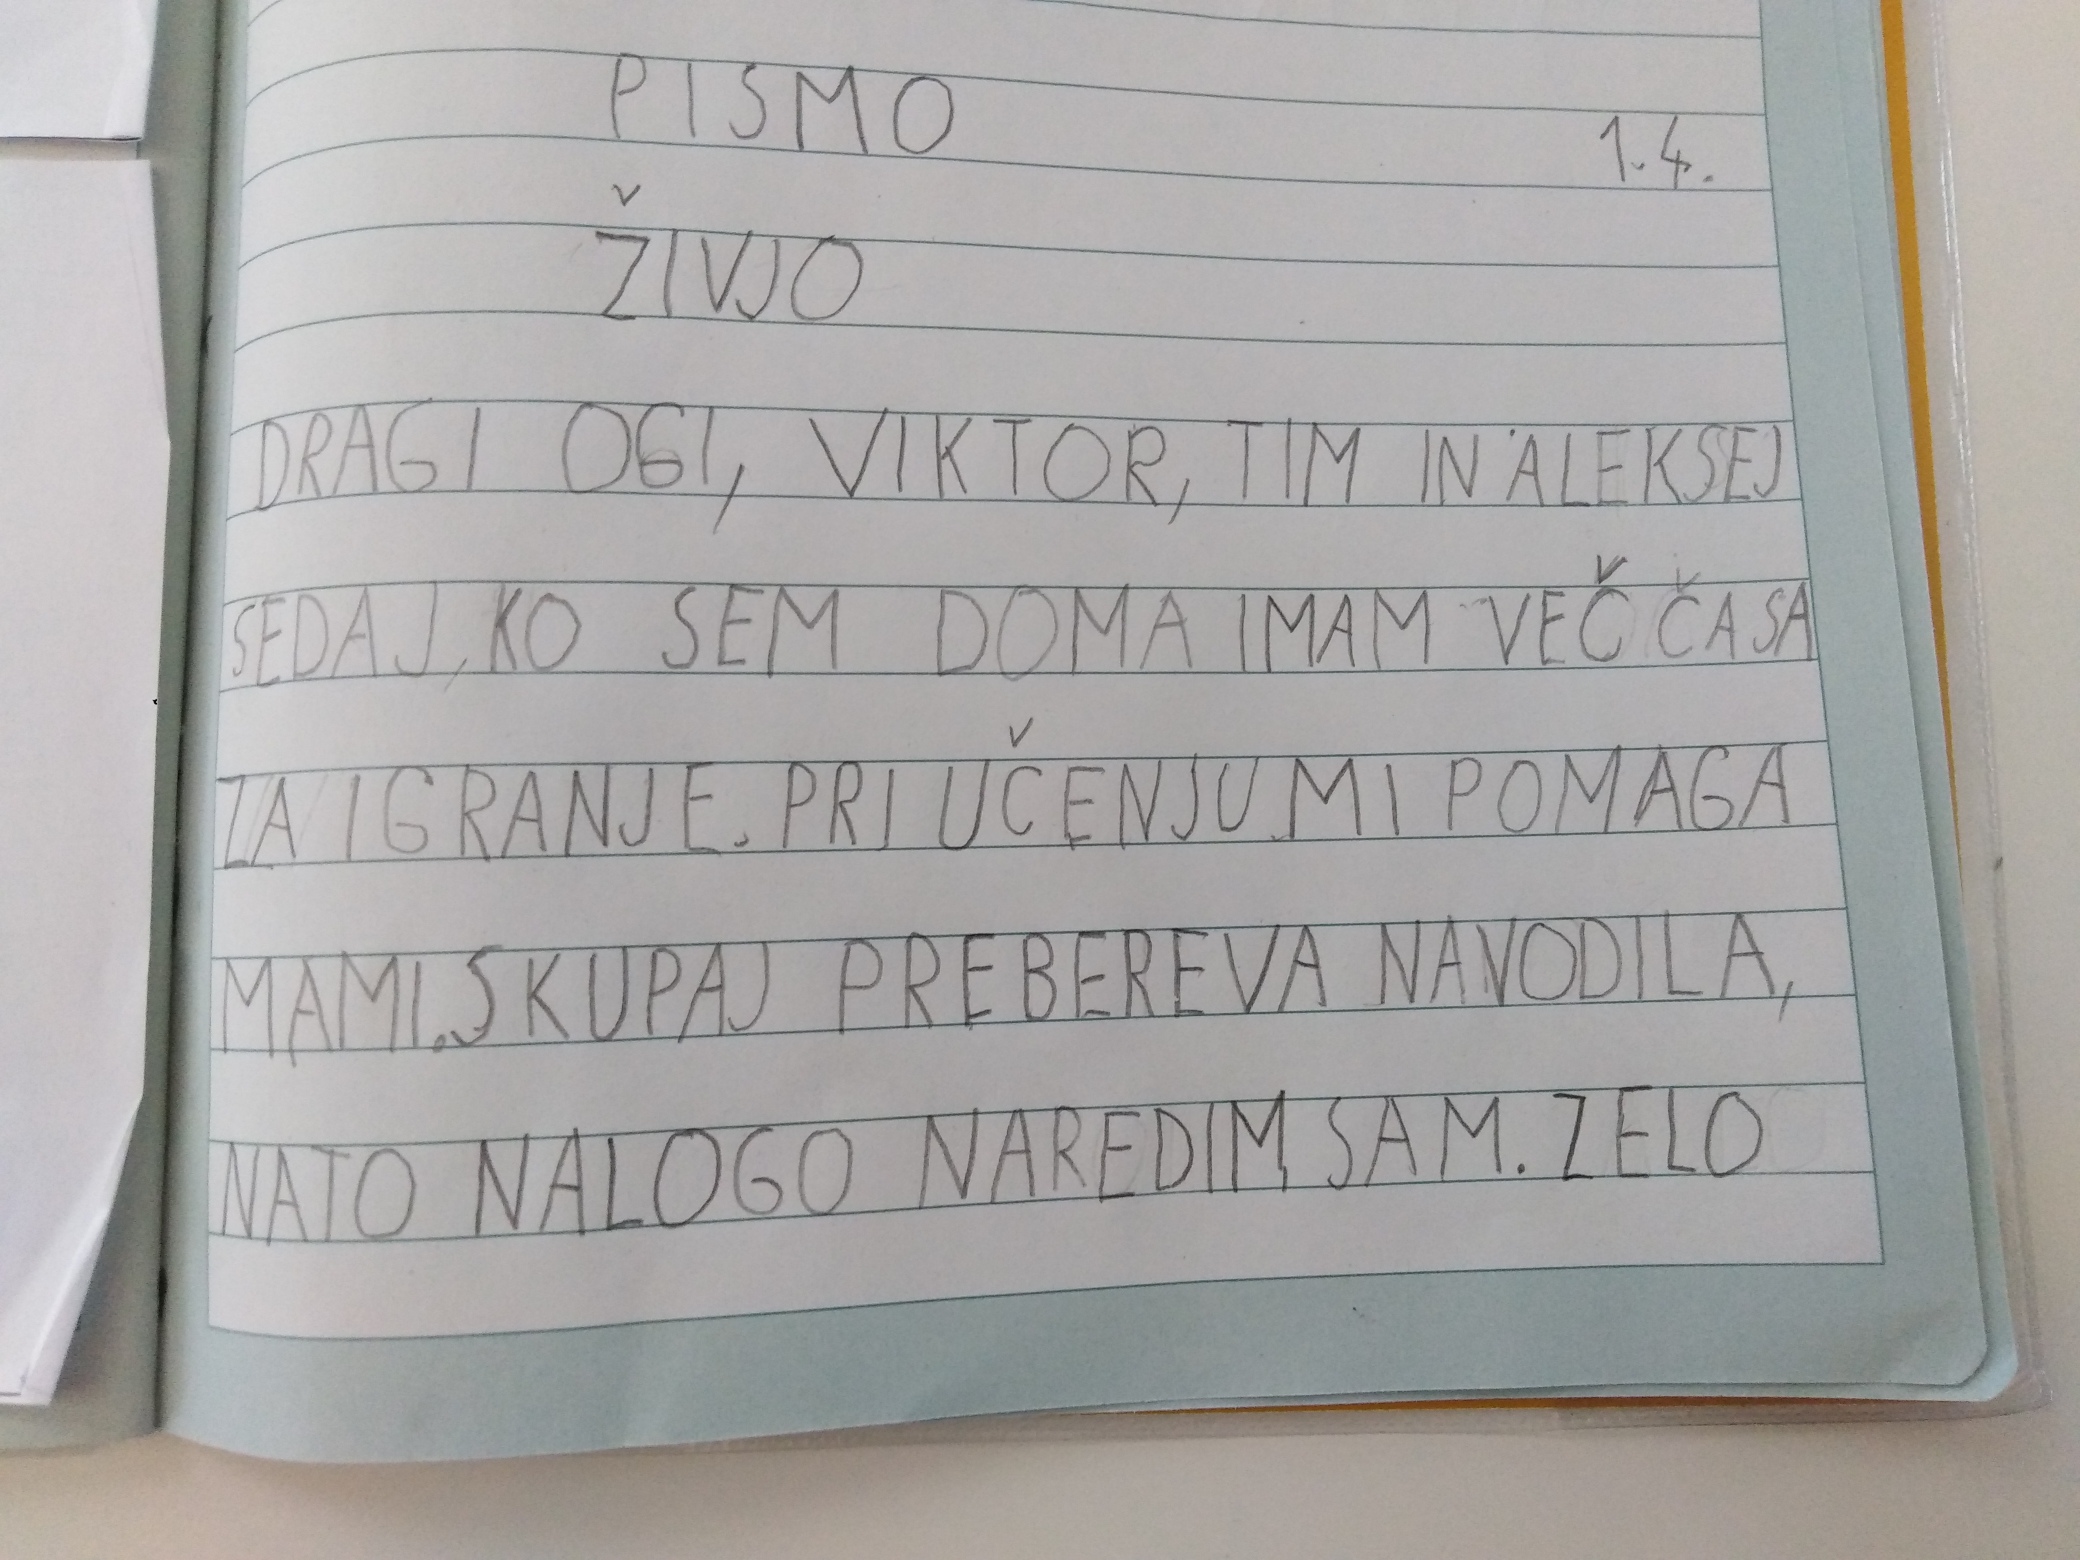 PISMO
1.4.
ŽIVJO
DRAGI OGI, VIKTOR, TIM IN ALEKSEJ
SEDAJ, KO SEM DOMA IMAM VEČ ČASA
ZA IGRANJE. PRI UČENJU MI POMAGA
MAMI. SKUPAJ PREBEREVA NAVODILA,
NATO NALOGO NAREDIM SAM. ZELO